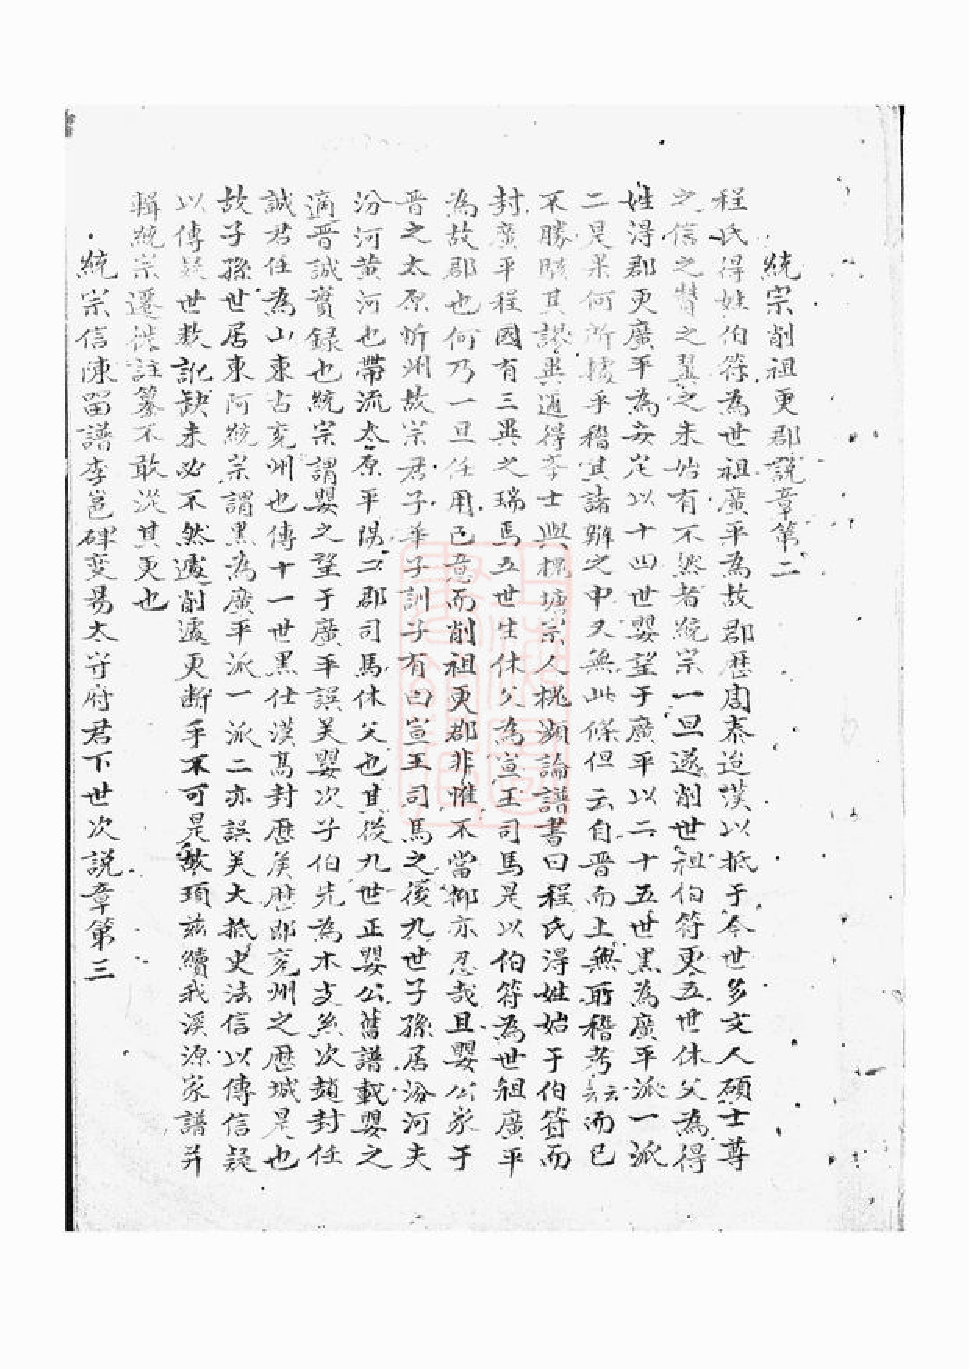 統宗削祖更郡說章第二
程氏得姓伯符為世祖廣平為故郡歷周秦迨漢以抵于今世多文人碩士尊
之信之替之翼之未始有不然者統宗一旦遂削世祖伯符更五世休父為得
姓得郡更廣平為安定以十四世嬰望于廣平以二十五世黑為廣平派一派
二是果何所據乎稽其諸辦之中又無此條但云自晋而上無所稽考云而已
不勝駭其謬與適得李士與槐塘宗人槐瀕論譜書曰程氏得姓始于伯符而
封廣平程國有三異之瑞焉五世生休父為宣王司馬是以伯符為世祖廣平
為故郡也何乃一旦任用己意而削祖更郡非惟不當抑亦忍哉且嬰公家于
晋之太原忻州故宗君子華子訓子有曰宣王司馬之後九世子孫居汾河夫
汾河黄河也帶流太原平陽二郡司馬休父也其後九世正嬰公舊譜載嬰之
適晋誠實録也統宗謂嬰之望于廣平誤矣嬰次子伯先為木支無次趙封任
誠君任為山東古兖州也傳十一世黑仕漢高封歷矦歷即兖州之歷城是也
故子孫世居東阿統宗謂黑為廣平派一派二亦誤矣大抵史法信以傳信疑
以傳疑世数訛缺未必不然遽削遽更断手不可是故項兹續我溪源家譜并
輯統宗遷徙註纂不敢淡其更也
統宗信陳留譜李邕碑變易太守府君下世次説章第三